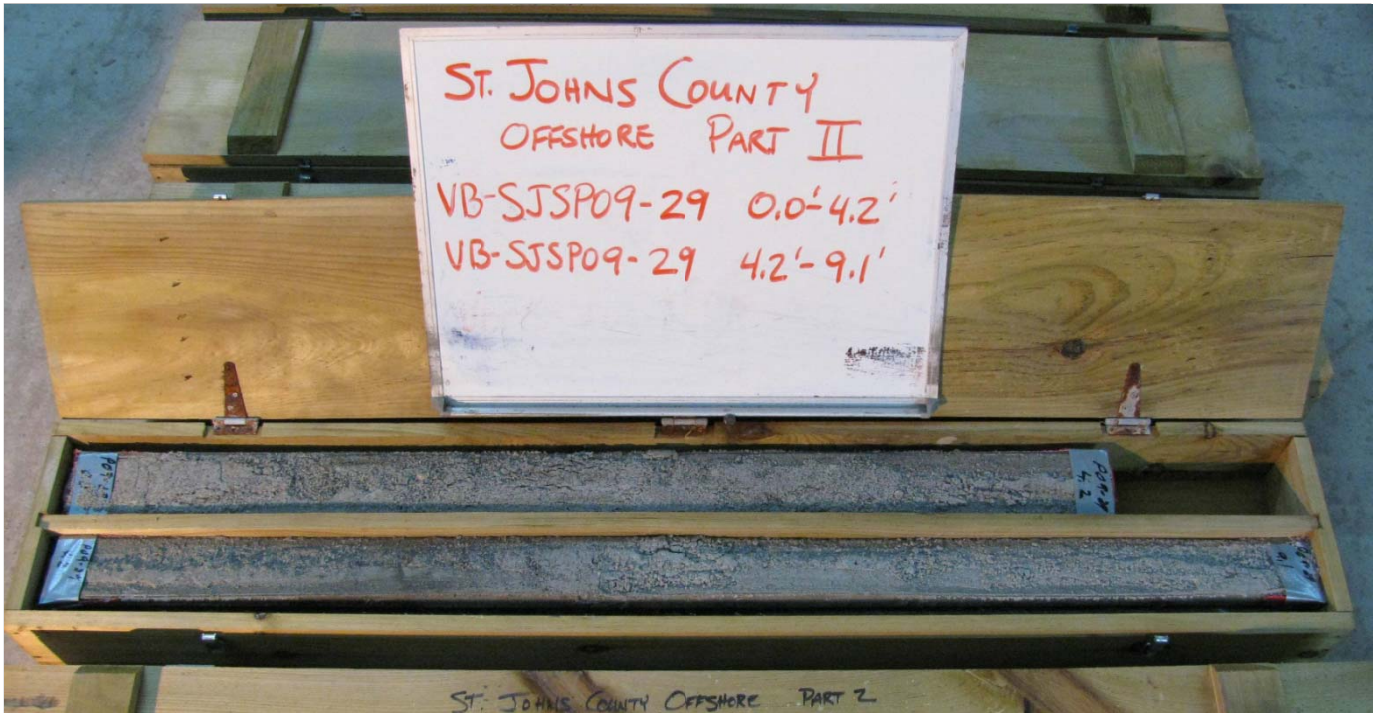 ST. JOHNS COUNTY
OFFSHORE PART II
VB-SJSP09-29 0.0'-4.2'
VB-SJSP09-29 4.2'-9.1'
4.2
ST. JOHNS COUNTY OFFSHORE PART 2